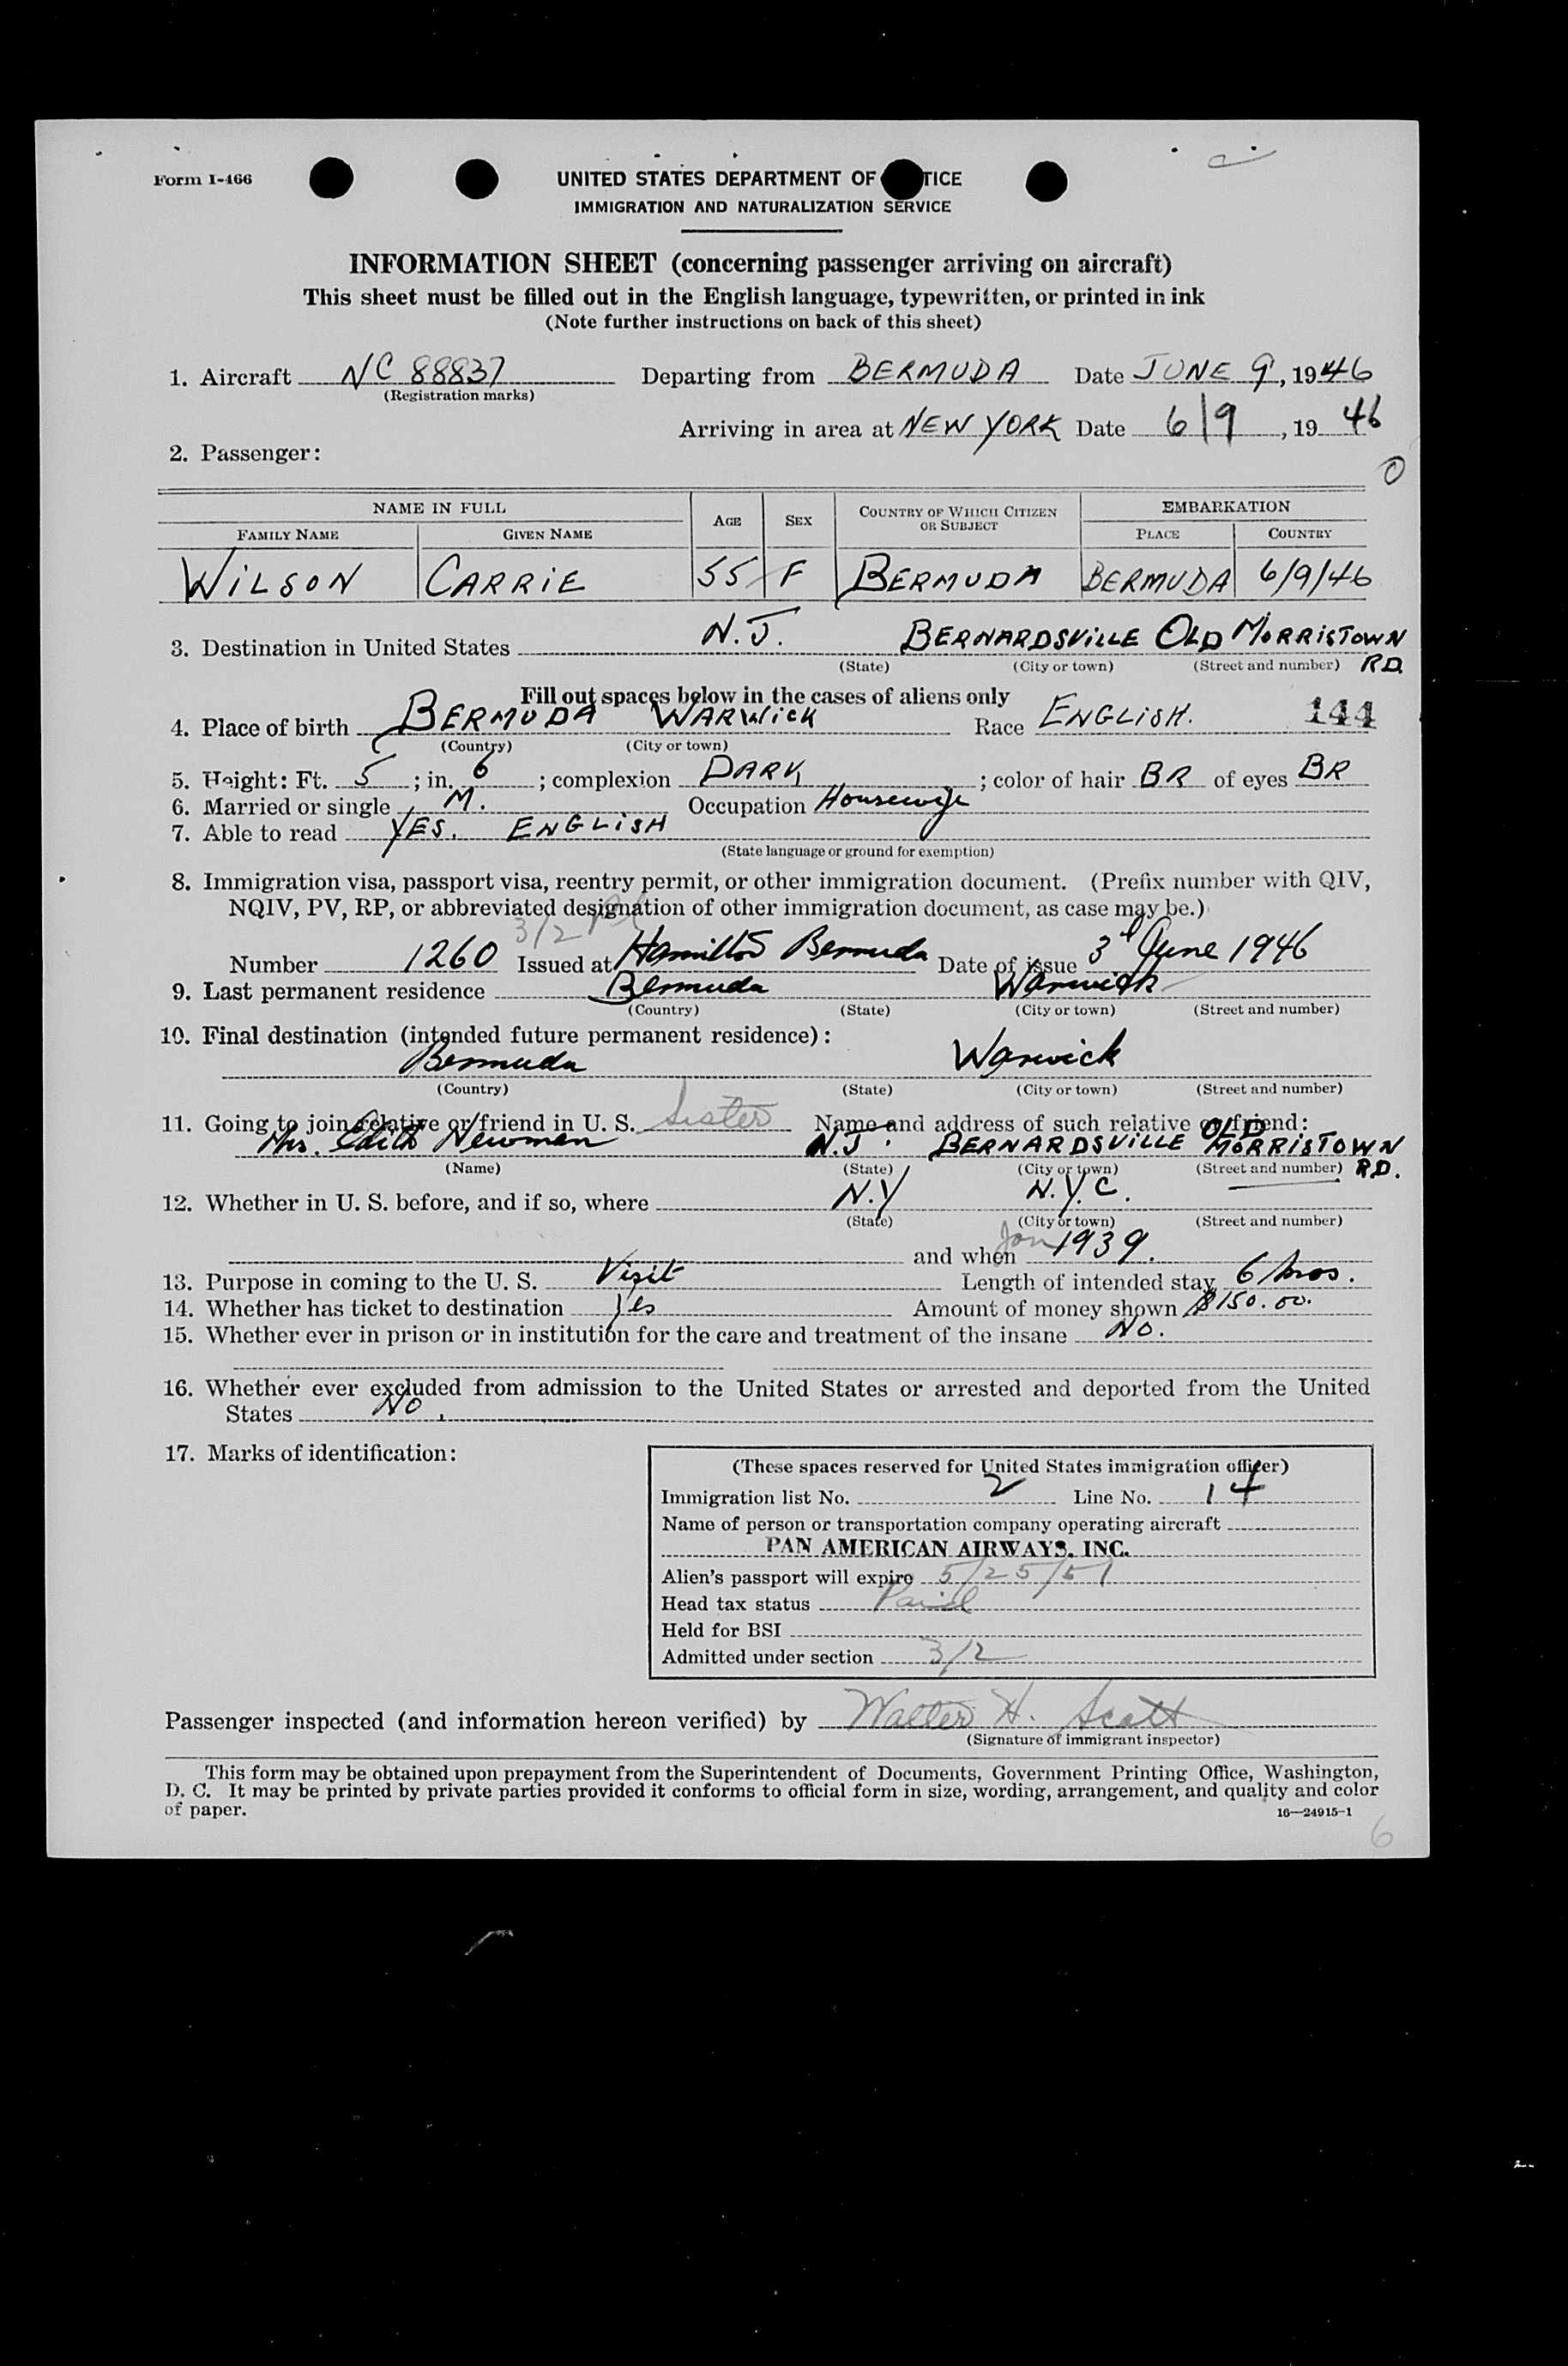 Form I-466
UNITED STATES DEPARTMENT OF TICE
IMMIGRATION AND NATURALIZATION SERVICE
INFORMATION SHEET (concerning passenger arriving on aircraft)
This sheet must be filled out in the English language, typewritten, or printed in ink
(Note further instructions on back of this sheet)
1. Aircraft NC 88837 Departing from BERMUDA Date JUNE 9, 1946
(Registration marks)
Arriving in area at NEW YORK Date 6/9, 19 46
2. Passenger:
0
NAME IN FULL AGE SEX COUNTRY OF WHICH CITIZEN OR SUBJECT EMBARKATION
FAMILY NAME GIVEN NAME PLACE COUNTRY
WILSON CARRIE 55 F BERMUDA BERMUDA 6/9/46
3. Destination in United States N.J. BERNARDSVILLE OLD MORRISTOWN RD.
(State) (City or town) (Street and number)
Fill out spaces below in the cases of aliens only
4. Place of birth BERMUDA WARWICK Race ENGLISH. 144
(Country) (City or town)
5. Height: Ft. 5; in. 6; complexion DARK; color of hair BR of eyes BR
6. Married or single M. Occupation Housewife
7. Able to read YES. ENGLISH
(State language or ground for exemption)
8. Immigration visa, passport visa, reentry permit, or other immigration document. (Prefix number with QIV,
NQIV, PV, RP, or abbreviated designation of other immigration document, as case may be.)
3/2
Number 1260 Issued at Hamilton Bermuda Date of issue 3d June 1946
9. Last permanent residence Bermuda Warwick
(Country) (State) (City or town) (Street and number)
10. Final destination (intended future permanent residence):
Bermuda Warwick
(Country) (State) (City or town) (Street and number)
11. Going to join relative or friend in U. S. Sister Name and address of such relative or friend:
Mrs. Edith Newman N.J. BERNARDSVILLE OLD MORRISTOWN RD.
(Name) (State) (City or town) (Street and number)
12. Whether in U. S. before, and if so, where N.Y N.Y.C.
(State) (City or town) (Street and number)
and when Jan 1939.
13. Purpose in coming to the U. S. Visit Length of intended stay 6 mos.
14. Whether has ticket to destination Yes Amount of money shown $150.00.
15. Whether ever in prison or in institution for the care and treatment of the insane No.
16. Whether ever excluded from admission to the United States or arrested and deported from the United
States No.
17. Marks of identification:
(These spaces reserved for United States immigration officer)
Immigration list No. 2 Line No. 14
Name of person or transportation company operating aircraft
PAN AMERICAN AIRWAYS, INC.
Alien's passport will expire 5/25/51
Head tax status Paid
Held for BSI
Admitted under section 3/2
Passenger inspected (and information hereon verified) by Walter H. Scott
(Signature of immigrant inspector)
This form may be obtained upon prepayment from the Superintendent of Documents, Government Printing Office, Washington,
D. C. It may be printed by private parties provided it conforms to official form in size, wording, arrangement, and quality and color
of paper.
16—24915-1
6